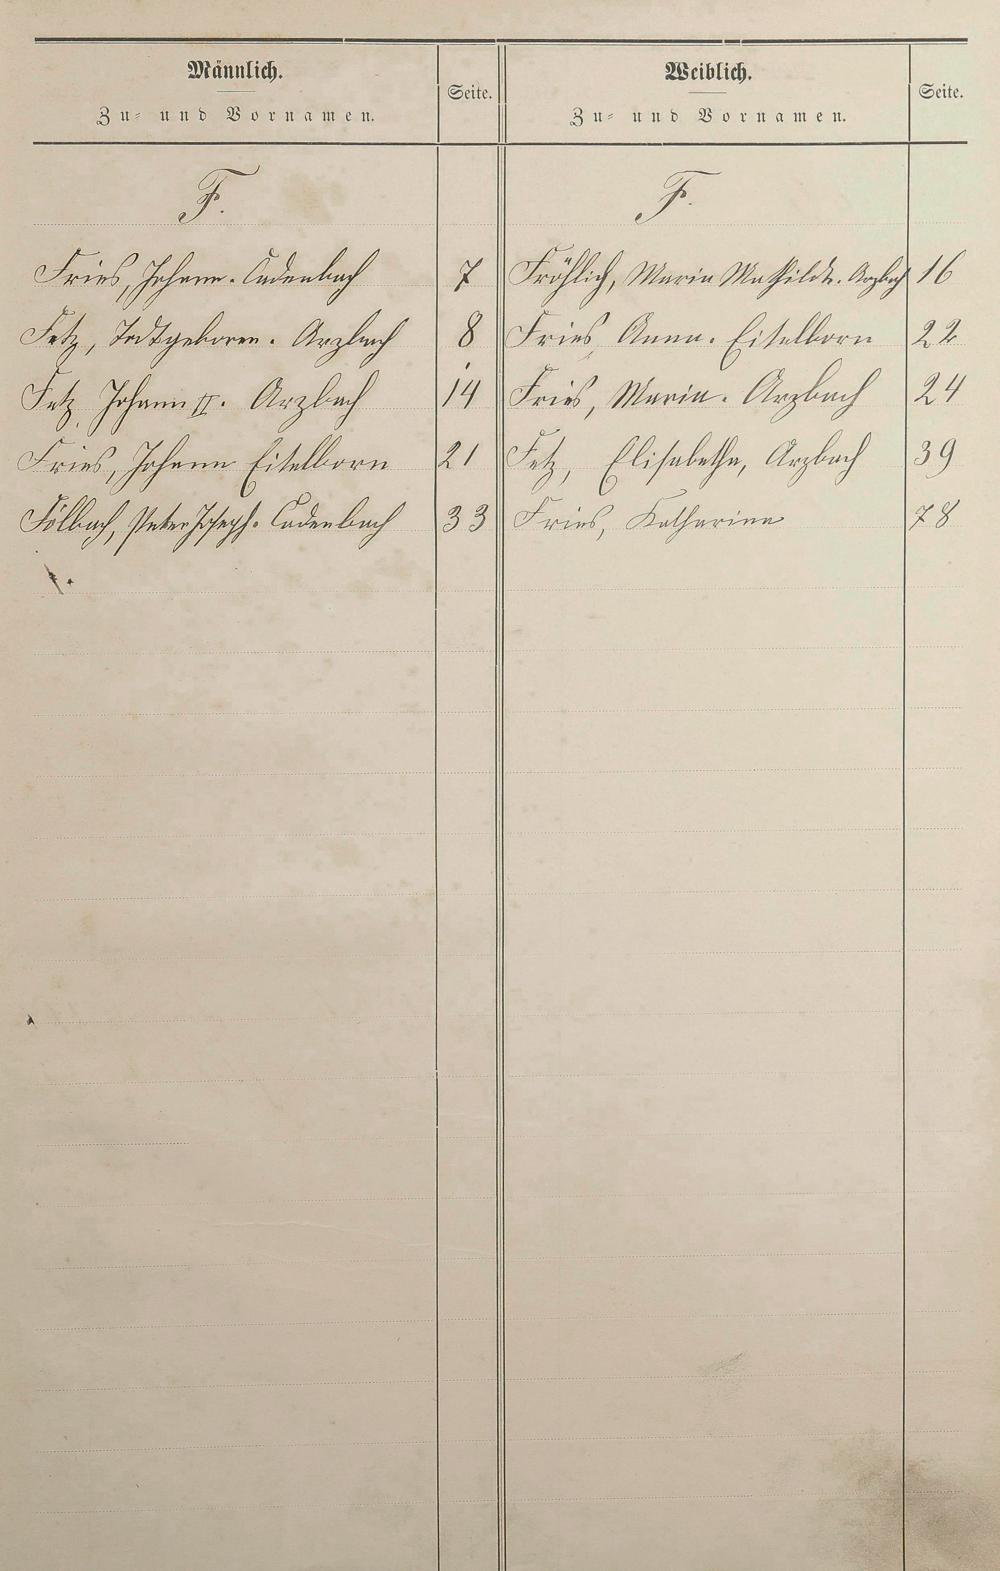 Männlich.
Zu- und Vornamen.
Seite.
Weiblich.
Zu- und Vornamen.
Seite.
F.
F.
Fries, Johann. Cadenbach 7
Fröhlich, Maria Mathilde. Arzbach 16
Fetz, Todtgeboren. Arzbach 8
Fries, Anna. Eitelborn 22
Fetz, Johann II. Arzbach 14
Fries, Maria. Arzbach 24
Fries, Johann Eitelborn 21
Fetz, Elisabetha, Arzbach 39
Fölbach, Peter Joseph. Cadenbach 33
Fries, Katharina 78